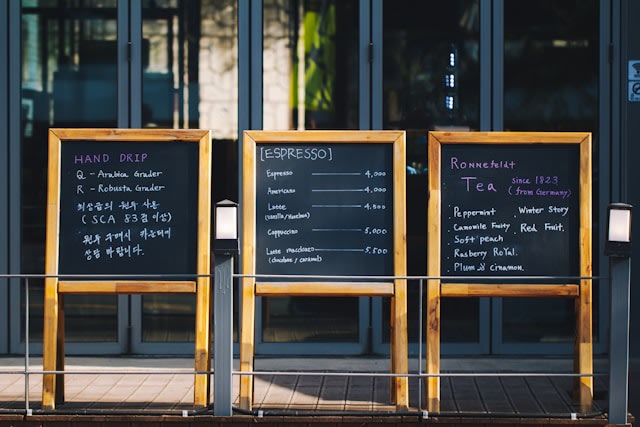 HAND DRIP
Q - Arabica Grader
R - Robusta Grader
최상급의 원두 사용
(SCA 83점 이상)
원두 구매시 카운터에
상담 바랍니다.
[ESPRESSO]
Espresso 4,000
Americano 4,000
Latte 4,500
(vanilla/Hazelnut)
Cappuccino 5,000
Latte macchiato 5,500
(chocolate / caramel)
Ronnefeldt
Tea since 1823
(from Germany)
Peppermint Winter Story
Camomile Fruity Red Fruit.
Soft peach
Rasberry Royal.
Plum & Cinamon.